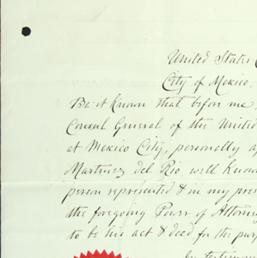 United States
City of Mexico
Be it Known that before me,
Consul General of the United
at Mexico City, personally
Martinez del Rio well known
person represented & in my
the foregoing Power of
to be his act & deed for the